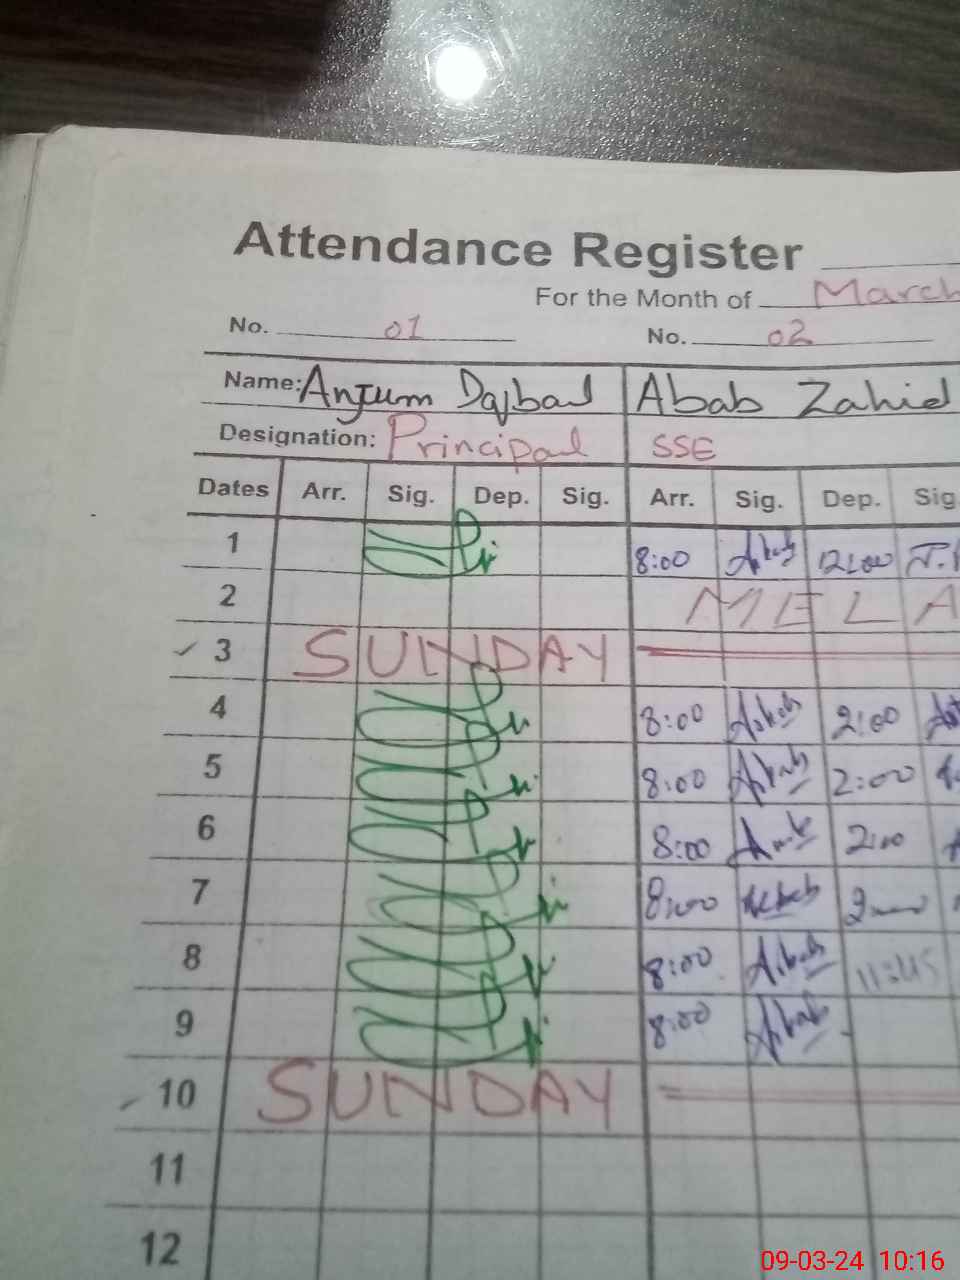 Attendance Register
For the Month of March
No. 01 No. 02
Name: Anjum Dajbal Abab Zahid
Designation: Principal SSE
Dates Arr. Sig. Dep. Sig. Arr. Sig. Dep. Sig.
1 8:00 12:00
2 MELA
3 SUNDAY
4 8:00 2:00
5 8:00 2:00
6 8:00 2:00
7 8:00
8 8:00 11:45
9 8:00
10 SUNDAY
11
12
09-03-24 10:16